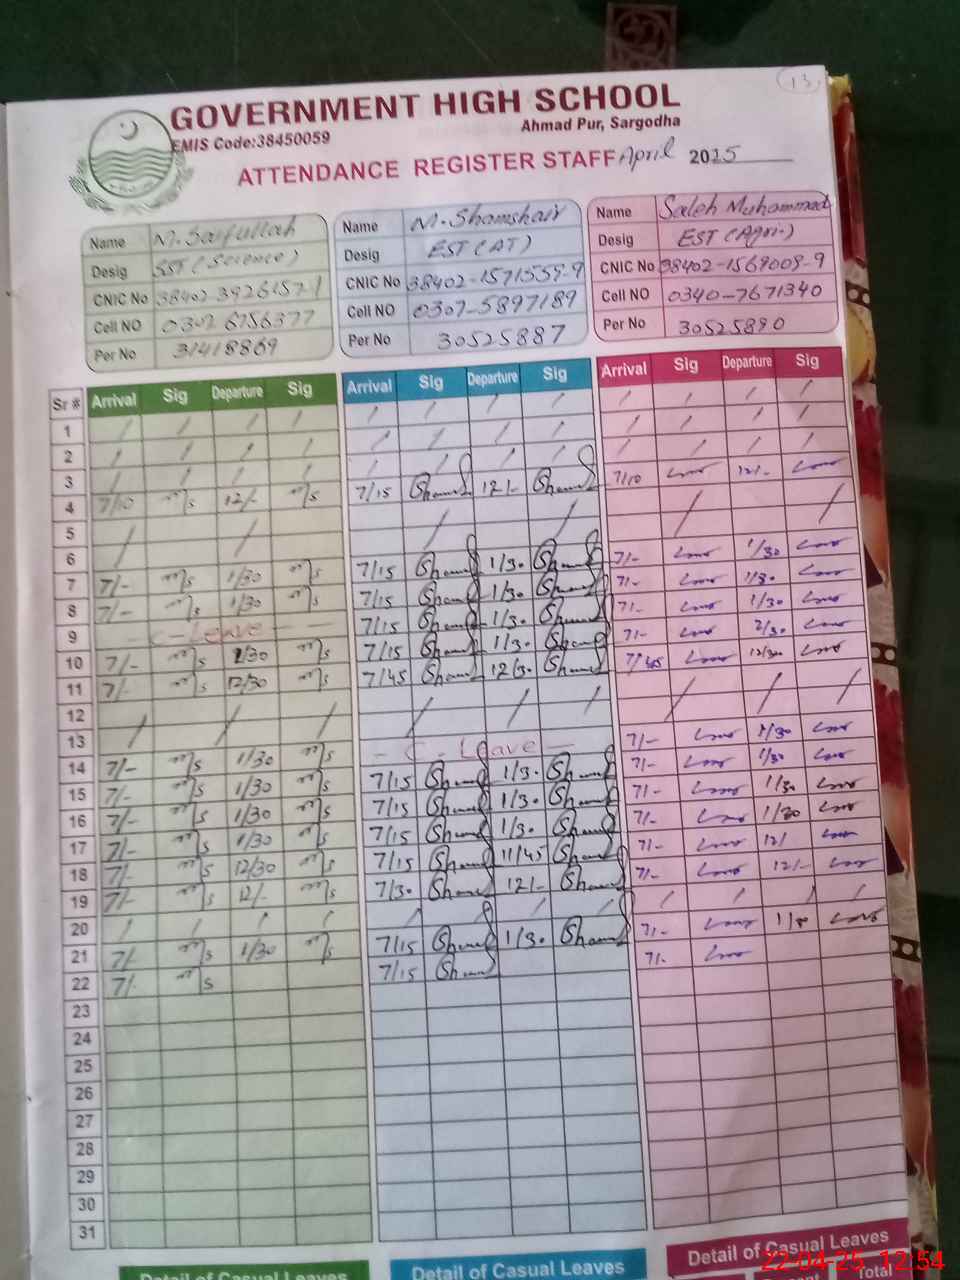 13
GOVERNMENT HIGH SCHOOL
EMIS Code:38450059 Ahmad Pur, Sargodha
ATTENDANCE REGISTER STAFF April 2025
Name M. Saifullah
Desig SST (Science)
CNIC No 38402-3926157-1
Cell NO 0307 6756377
Per No 31418869
Name M. Shamshair
Desig EST (AT)
CNIC No 38402-1571559-9
Cell NO 0307-5897189
Per No 30525887
Name Saleh Muhammad
Desig EST (Agri-)
CNIC No 38402-1569009-9
Cell NO 0340-7671340
Per No 30525890
Sr # Arrival Sig Departure Sig Arrival Sig Departure Sig Arrival Sig Departure Sig
1 / / / / / / / / / / / /
2 / / / / / / / / / / / /
3 / / / / / / / / / / / /
4 7/10 m/s 12/- m/s 7/15 Sham 12/- Sham 7/10 12/-
5 / / / / / /
6
7 7/- m/s 1/30 m/s 7/15 Sham 1/30 Sham 7/- 1/30
8 7/- m/s 1/30 m/s 7/15 Sham 1/30 Sham 7/- 1/30
9 C-Leave 7/15 Sham 1/30 Sham 7/- 1/30
10 7/- m/s 1/30 m/s 7/15 Sham 1/30 Sham 7/- 1/30
11 7/- m/s 12/30 m/s 7/45 Sham 12/30 Sham 7/45 12/30
12 / / / / / / / / /
13
14 7/- m/s 1/30 m/s - C - Leave - 7/- 1/30
15 7/- m/s 1/30 m/s 7/15 Sham 1/30 Sham 7/- 1/30
16 7/- m/s 1/30 m/s 7/15 Sham 1/30 Sham 7/- 1/30
17 7/- m/s 1/30 m/s 7/15 Sham 1/30 Sham 7/- 1/30
18 7/- m/s 12/30 m/s 7/15 Sham 11/45 Sham 7/- 12/
19 7/- m/s 12/- m/s 7/30 Sham 12/- Sham 7/- 12/-
20 / / / / / / / / / / /
21 7/- m/s 1/30 m/s 7/15 Sham 1/30 Sham 7/- 1/30
22 7/- m/s 7/15 Sham 7/-
23
24
25
26
27
28
29
30
31
Detail of Casual Leaves Detail of Casual Leaves Detail of Casual Leaves
Total
22-04-25 12:54